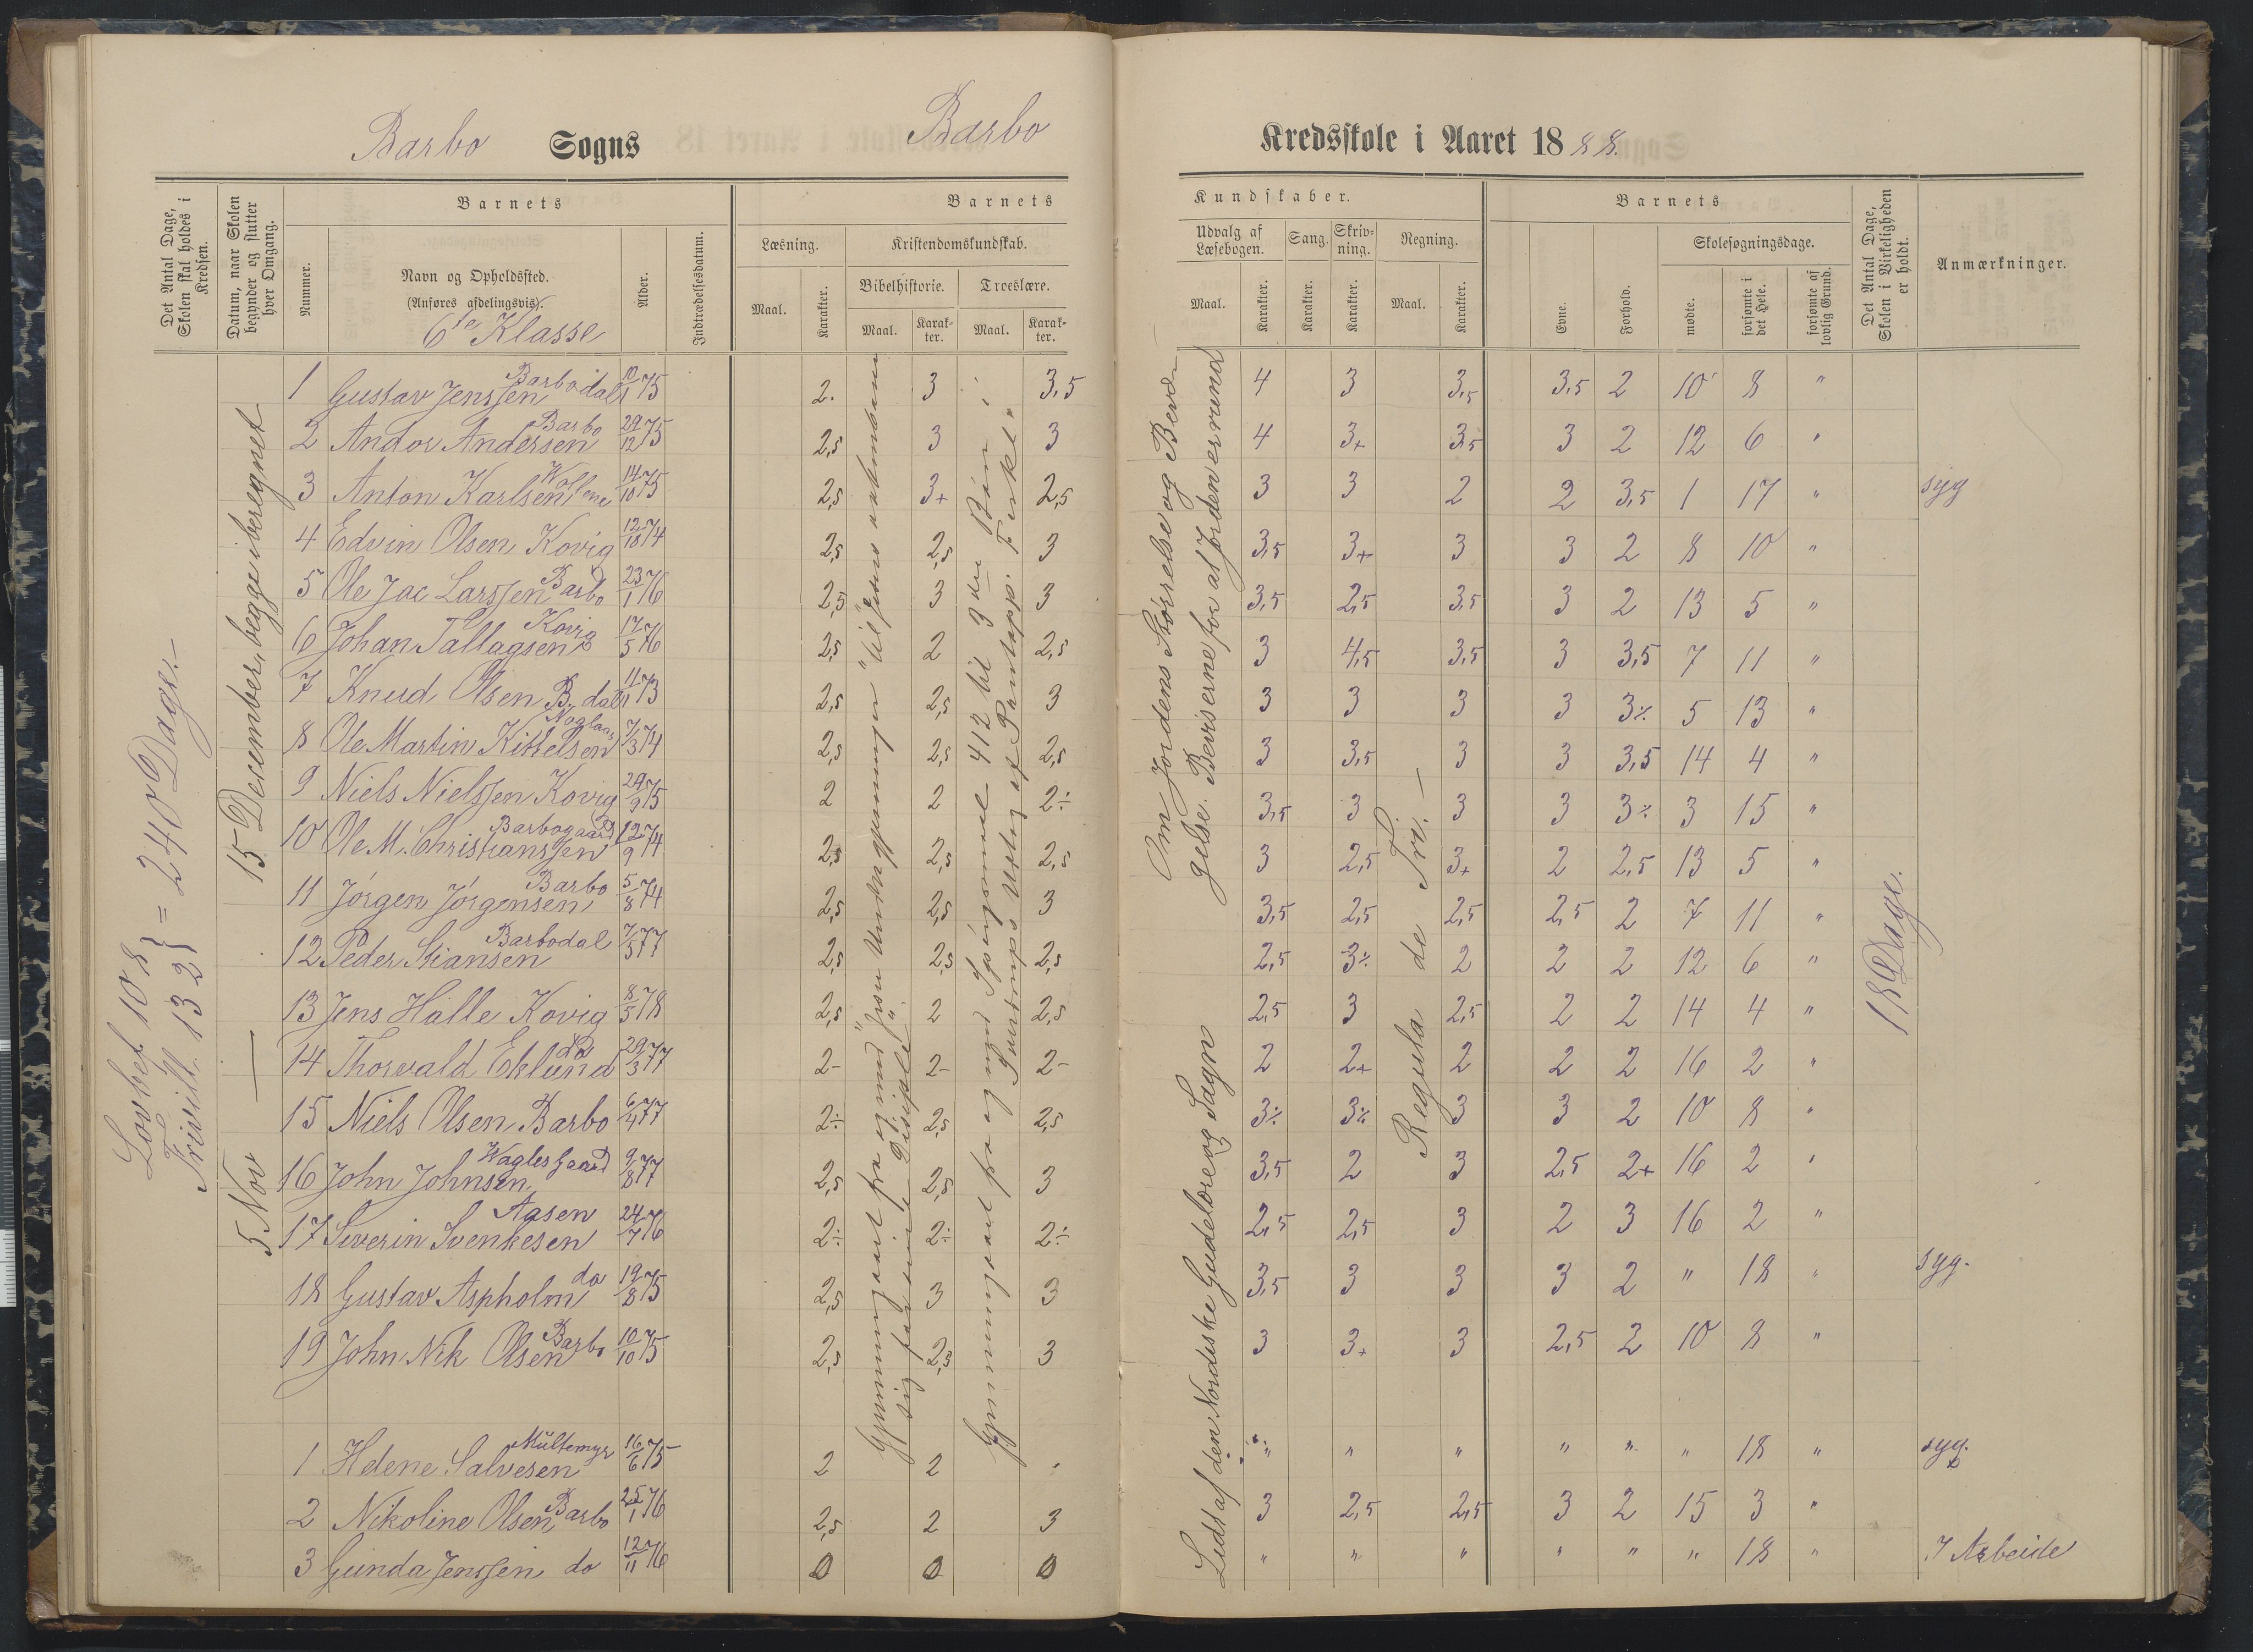 Barbo Sogns Barbo Kredsskole i Aaret 1888.
Det Antal Dage, Skolen skal holdes i Kredsen.
Datum, naar Skolen begynder og slutter hver Omgang.
Barnets
Nummer.
Navn og Opholdssted.
(Anføres afdelingsvis).
6te Klasse
Alder.
Indtrædelsesdatum.
Barnets Kundskaber.
Læsning.
Maal.
Karakter.
Kristendomskundskab.
Bibelhistorie.
Maal.
Karakter.
Troeslære.
Maal.
Karakter.
Udvalg af Læsebogen.
Maal.
Karakter.
Sang.
Karakter.
Skrivning.
Karakter.
Regning.
Maal.
Karakter.
Barnets
Evne.
Forhold.
Skolesøgningsdage.
mødte.
forsømte i det Hele.
forsømte af lovlig Grund.
Det Antal Dage, Skolen i Virkeligheden er holdt.
Anmærkninger.
Lovbef 108
Frivill. 132 } = 240 Dage.-
5 Nov — 15 December, begge iberegnet
Gjennemgaaet fra og med "Jesu Undergjerninger" til
sig far sine Disiple".
Gjennemgaaet fra og med Spörgsmaal 412 til 3die Bön i
Sverdrups Udtog af Pontopp. Forkl."
Om Jordens Størrelse og Bevægelse. Beviserne for at Jorden er rund
Lidt af den Nordiske Gudelære og Sagn
Regula de Tri. —
18 Dage.
1 Gustav Jenssen Barbodal 10/1 75 2. 3 3,5 4 3 3,5 3,5 2 10 8 "
2 Andor Andersen Barbo 29/12 75 2,5 3 3 4 3+ 3,5 3 2 12 6 "
3 Anton Karlsen Wollene 14/10 75 2,5 3+ 2,5 3 3 2 2 3,5 1 17 " syg
4 Edvin Olsen Kovig 12/10 74 2,5 2,5 3 3,5 3+ 3 3 2 8 10 "
5 Ole Jac Larssen Barbo 23/1 76 2,5 3 3 3,5 2,5 3,5 3 2 13 5 "
6 Johan Tallagsen Kovig 17/5 76 2,5 2 2,5 3 4,5 3,5 3 3,5 7 11 "
7 Knud Olsen B. dal 11/1 73 2,5 2,5 3 3 3 3 3 3÷ 5 13 "
8 Ole Martin Kittelsen 7/3 74 2,5 2,5 2,5 3 3,5 3 3 3,5 14 4 "
9 Niels Nielssen Kovig 29/9 75 2 2 2÷ 3,5 3 3 3 3÷ 3 15 "
10 Ole M. Christianssen Barbogaard 12/9 74 2,5 2,5 2,5 3 2,5 3+ 2 2,5 13 5 "
11 Jörgen Jörgensen Barbo 5/8 74 2,5 2,5 3 3,5 2,5 2,5 2,5 2 7 11 "
12 Peder Stiansen Barbodal 7/5 77 2,5 2,5 2,5 2,5 3÷ 2 2 2 12 6 "
13 Jens Halle Kovig 8/5 78 2,5 2 2,5 2,5 3 2,5 2 2 14 4 "
14 Thorvald Eklund do 29/3 77 2- 2- 2- 2 2+ 2 2 2 16 2 "
15 Niels Olsen Barbo 6/4 77 2÷ 2,5 2,5 3÷ 3÷ 3 3 2 10 8 "
16 John Johnsen Waglesgaard 9/8 77 2,5 2,5 3 3,5 2 3 2,5 2+ 16 2 "
17 Siverin Svenkesen Aasen 24/7 76 2÷ 2÷ 2÷ 2,5 2,5 3 2 3 16 2 "
18 Gustav Aspholm do 19/8 75 2,5 3 3 3,5 3 3 3 2 " 18 " syg.
19 John Nik Olsen Barbo 10/10 75 2,5 2,5 3 3 3+ 3 2,5 2 10 8 "
1 Helene Salvesen Multemyr 16/6 75 2 2 " " " " " " 18 " syg.
2 Nikoline Olsen Barbo 25/1 76 2,5 2 3 3 2,5 2,5 3 2 15 3 "
3 Gunda Jenssen do 12/11 76 0 0 0 " " " " " " 18 " I Arbeide